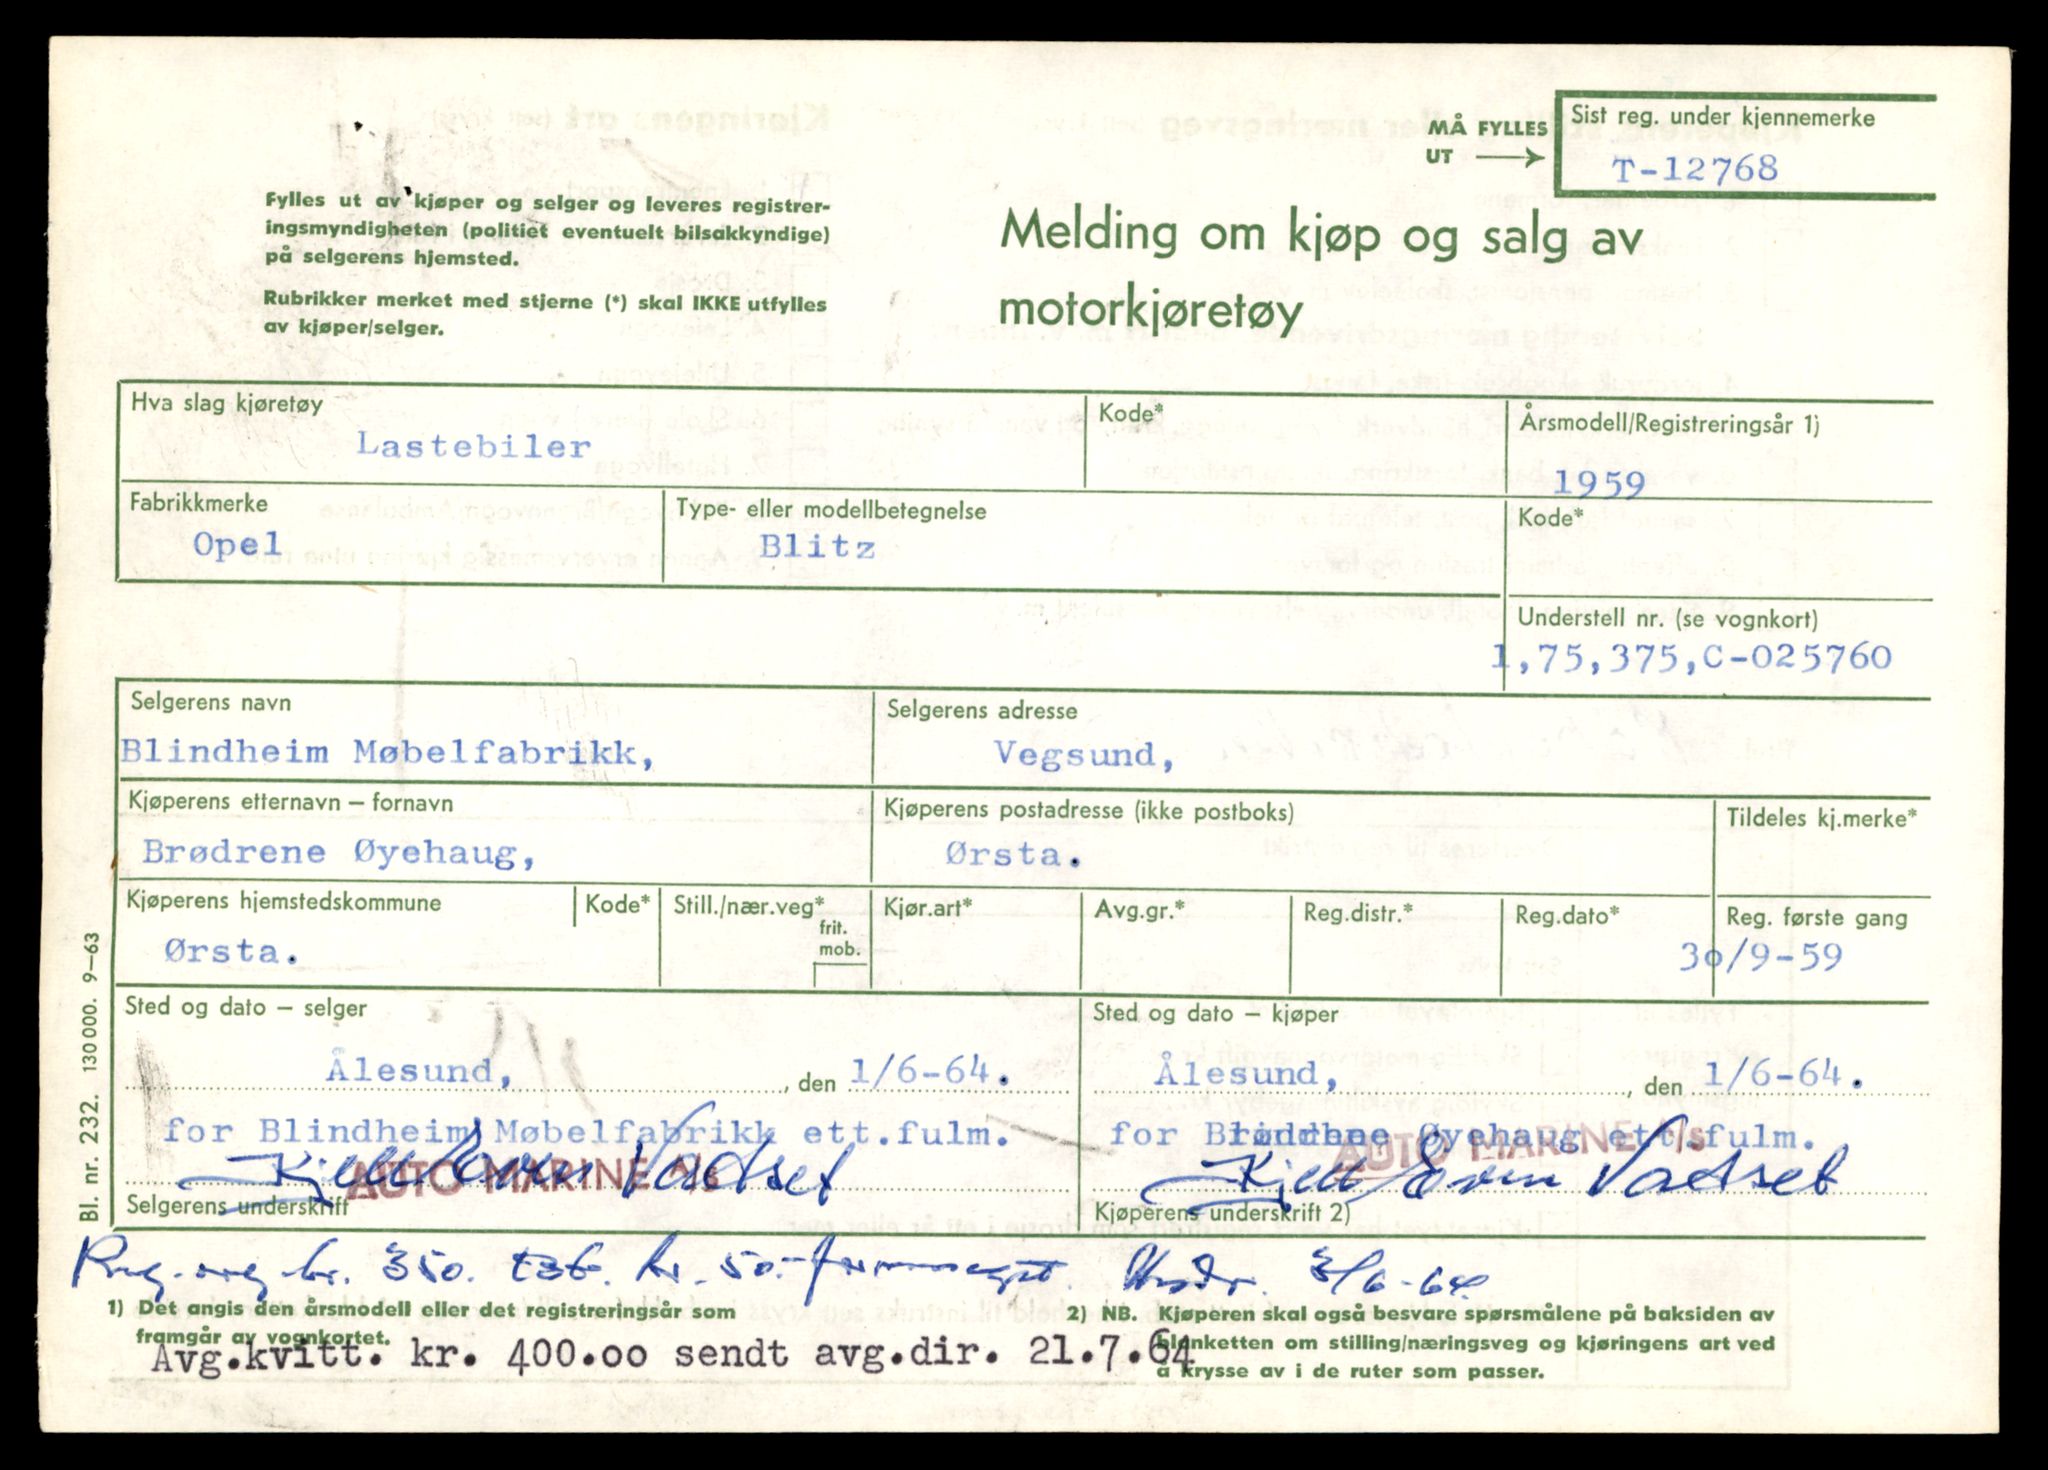 Sist reg. under kjennemerke
MÅ FYLLES
UT
T-12768
Fylles ut av kjøper og selger og leveres registrer-
ingsmyndigheten (politiet eventuelt bilsakkyndige)
på selgerens hjemsted.
Rubrikker merket med stjerne (*) skal IKKE utfylles
av kjøper/selger.
Melding om kjøp og salg av
motorkjøretøy
Hva slag kjøretøy
Lastebiler
Kode*
Årsmodell/Registreringsår 1)
1959
Fabrikkmerke
Opel
Type- eller modellbetegnelse
Blitz
Kode*
Understell nr. (se vognkort)
1,75,375,C-025760
Selgerens navn
Blindheim Møbelfabrikk,
Selgerens adresse
Vegsund,
Kjøperens etternavn – fornavn
Brødrene Øyehaug,
Kjøperens postadresse (ikke postboks)
Ørsta.
Tildeles kj.merke*
Kjøperens hjemstedskommune
Ørsta.
Kode*
Still./nær.veg*
frit.
mob.
Kjør.art*
Avg.gr.*
Reg.distr.*
Reg.dato*
Reg. første gang
30/9-59
Sted og dato – selger
Ålesund, , den 1/6-64.
for Blindheim Møbelfabrikk ett.fulm.
AUTO MARINE A/S
Kjell Even Vadset
Selgerens underskrift
Sted og dato – kjøper
Ålesund, , den 1/6-64.
for Brødrene Øyehaug ett.fulm.
AUTO MARINE A/S
Kjell Even Vadset
Kjøperens underskrift 2)
Reg. avg. kr. 350. kr. 50.- 3/6-64
1) Det angis den årsmodell eller det registreringsår som
framgår av vognkortet.
Avg.kvitt. kr. 400.00 sendt avg.dir. 21.7.64
2) NB. Kjøperen skal også besvare spørsmålene på baksiden av
blanketten om stilling/næringsveg og kjøringens art ved
å krysse av i de ruter som passer.
Bl. nr. 232. 130 000. 9–63